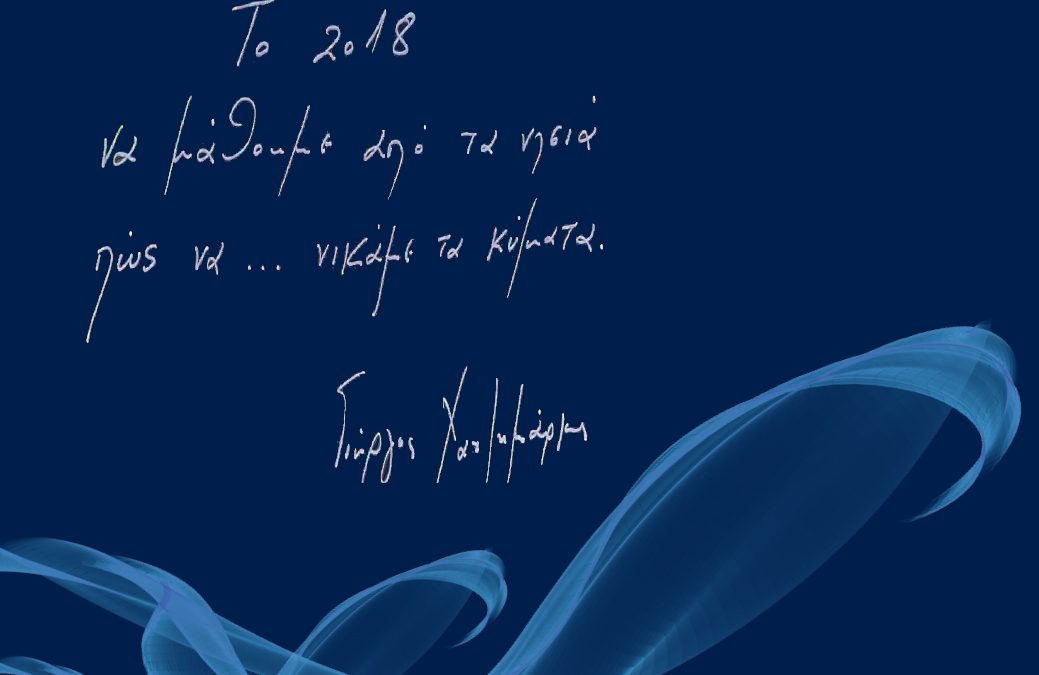 Το 2018
να μάθουμε από τα νησιά
πώς να ... νικάμε τα κύματα.
Γιώργος Χατζημάρκος